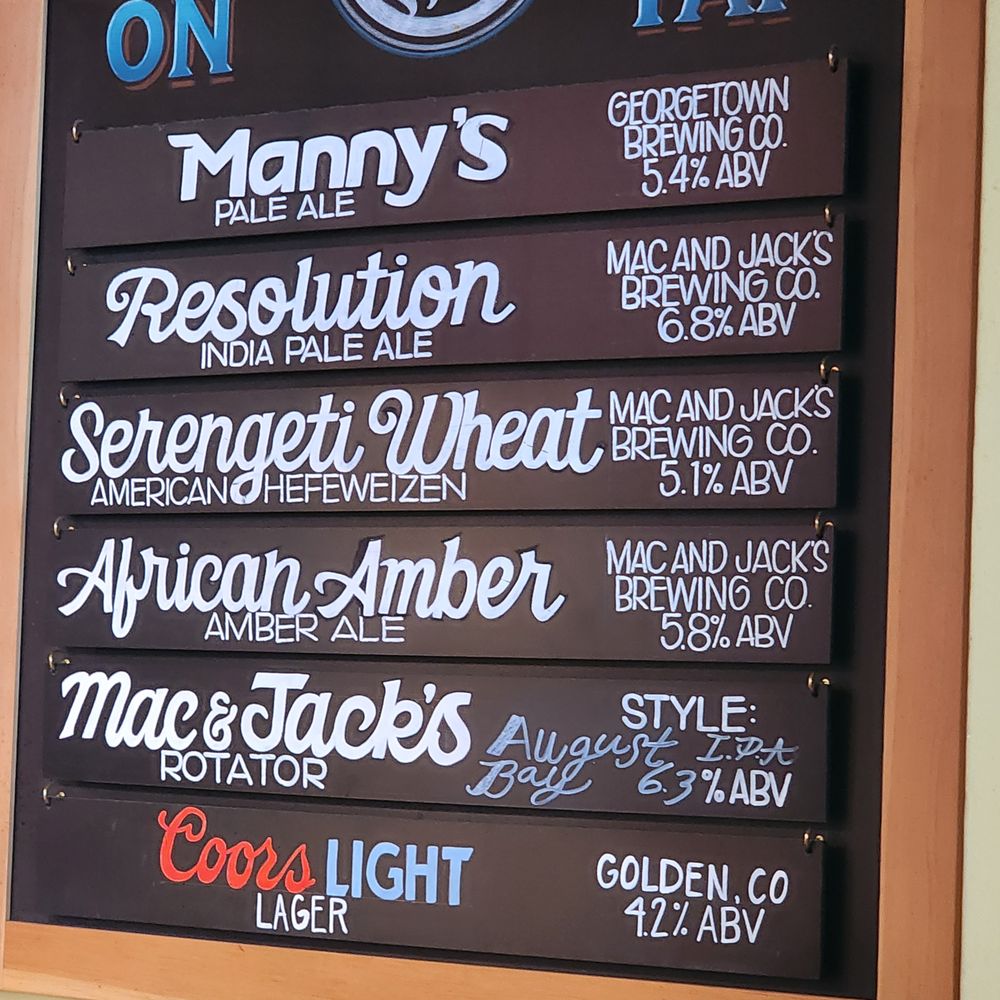 ON TAP
Manny's
PALE ALE
GEORGETOWN
BREWING CO.
5.4% ABV
Resolution
INDIA PALE ALE
MAC AND JACK'S
BREWING CO.
6.8% ABV
Serengeti Wheat
AMERICAN HEFEWEIZEN
MAC AND JACK'S
BREWING CO.
5.1% ABV
African Amber
AMBER ALE
MAC AND JACK'S
BREWING CO.
5.8% ABV
Mac & Jack's
ROTATOR
STYLE:
August I.P.A
Bay 6.3% ABV
Coors LIGHT
LAGER
GOLDEN, CO
4.2% ABV